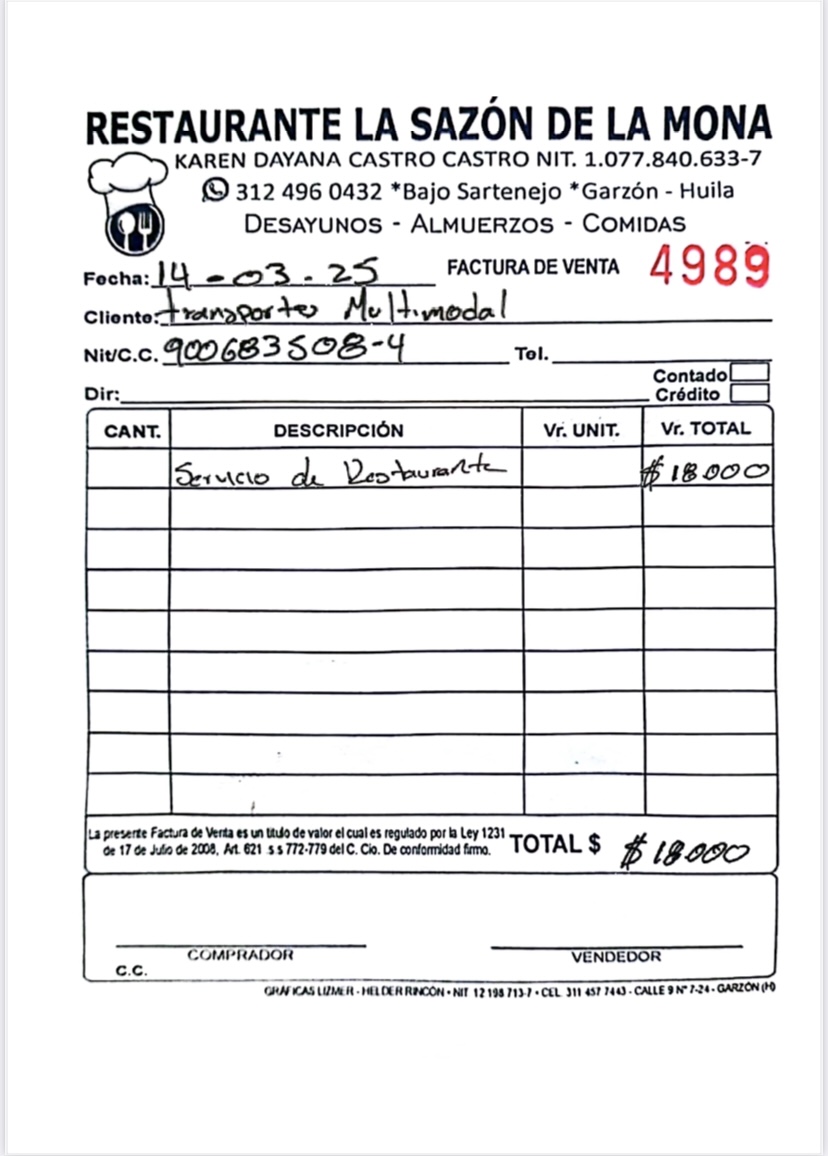 RESTAURANTE LA SAZÓN DE LA MONA
KAREN DAYANA CASTRO CASTRO NIT. 1.077.840.633-7
312 496 0432 *Bajo Sartenejo *Garzón - Huila
DESAYUNOS - ALMUERZOS - COMIDAS
Fecha: 14-03-25 FACTURA DE VENTA 4989
Cliente: transportes Multimodal
Nit/C.C. 900683508-4 Tel.
Contado
Dir: Crédito
CANT. DESCRIPCIÓN Vr. UNIT. Vr. TOTAL
Servicio de Restaurante $ 18.000
La presente Factura de Venta es un titulo de valor el cual es regulado por la Ley 1231
de 17 de Julio de 2008, Art. 621 s s 772-779 del C. Cio. De conformidad firmo. TOTAL $ $ 18.000
COMPRADOR VENDEDOR
C.C.
GRÁFICAS LIZMER - HELDER RINCÓN • NIT 12 198 713-7 • CEL 311 457 7443 - CALLE 9 N° 7-24 - GARZÓN (H)